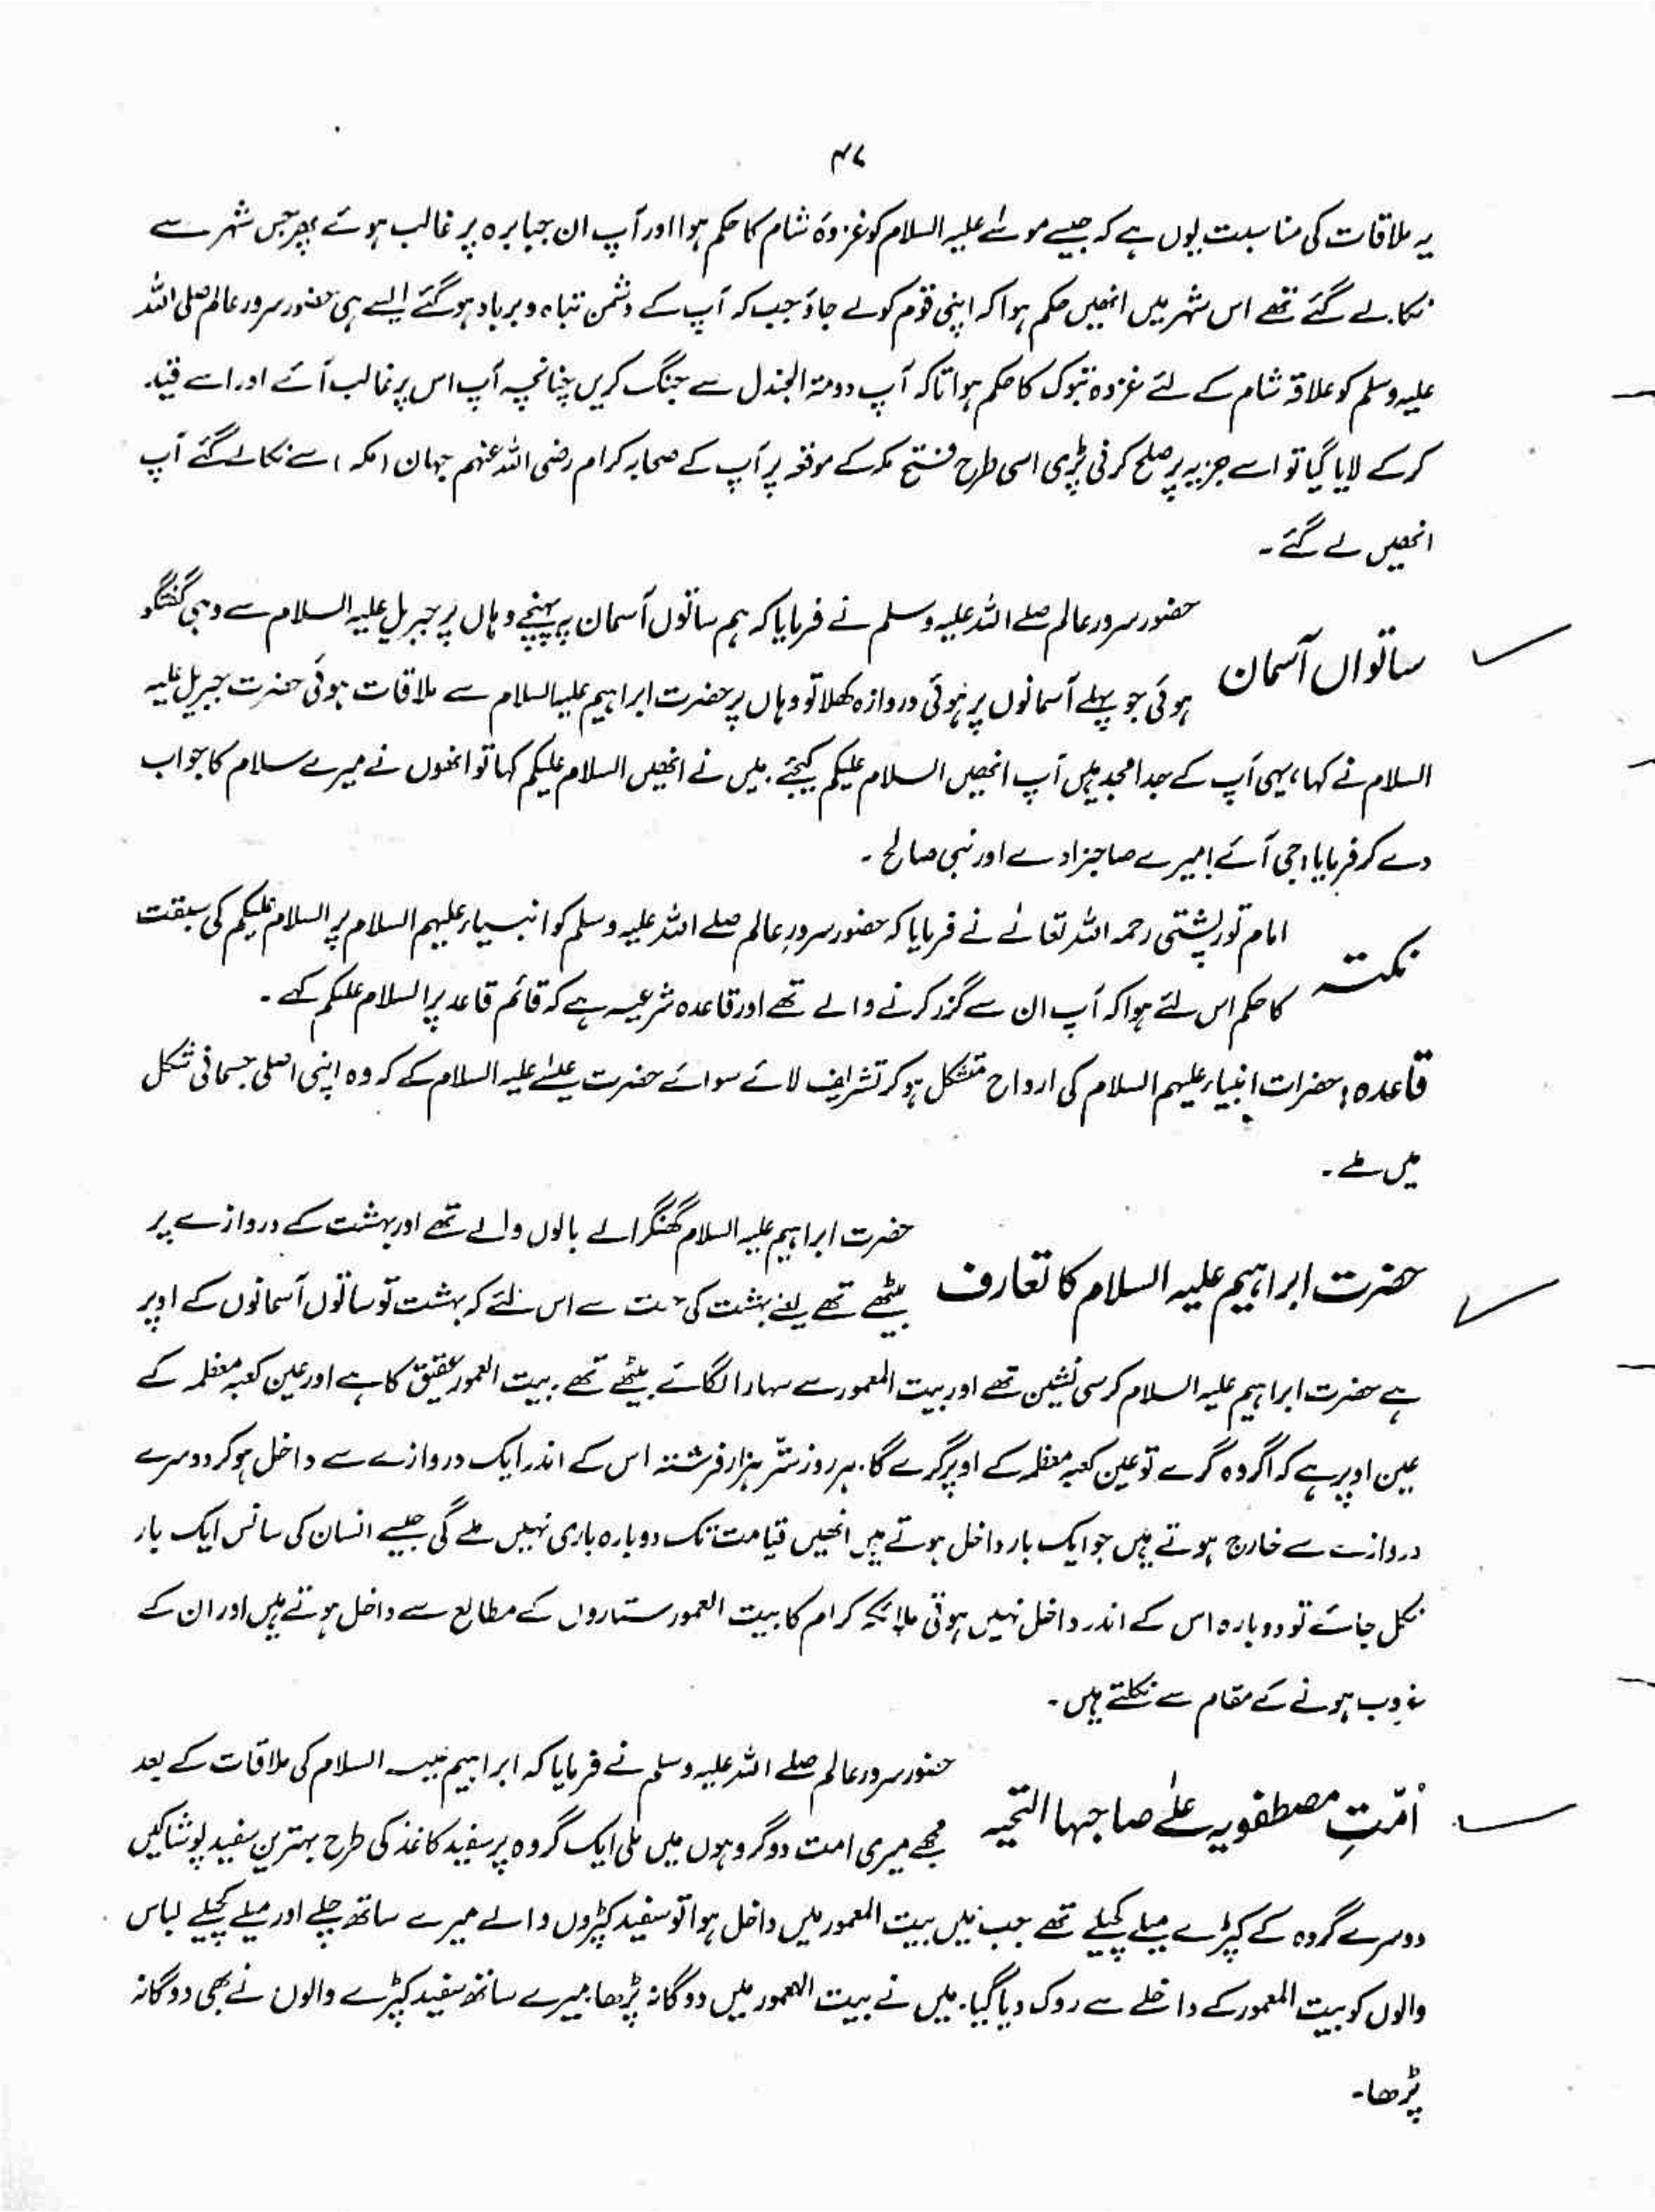 ۴۷
یہ ملاقات کی مناسبت یوں ہے کہ جیسے موسٰے علیہ السلام کو غزوۂ شام کا حکم ہوا اور آپ ان جبابرہ پر غالب ہوئے پھر جس شہر سے
نکالے گئے تھے اس شہر میں انھیں حکم ہوا کہ اپنی قوم کو لے جاؤ جب کہ آپ کے دشمن تباہ و برباد ہو گئے ایسے ہی حضور سرور عالم صلی اللہ
علیہ وسلم کو علاقہ شام کے لئے غزوہ تبوک کا حکم ہوا تاکہ آپ دومۃ الجندل سے جنگ کریں چنانچہ آپ اس پر غالب آئے اور اسے قید
کر کے لایا گیا تو اسے جزیہ پر صلح کرنی پڑی اسی طرح فتح مکہ کے موقعہ پر آپ کے صحابہ کرام رضی اللہ عنہم جہان (مکہ) سے نکالے گئے آپ
انھیں لے گئے ۔
ساتواں آسمان
حضور سرور عالم صلے اللہ علیہ وسلم نے فرمایا کہ ہم ساتوں آسمان پر پہنچے وہاں پر جبریل علیہ السلام سے وہی گفتگو
ہوئی جو پہلے آسمانوں پر ہوئی دروازہ کھلا تو وہاں پر حضرت ابراہیم علیہ السلام سے ملاقات ہوئی حضرت جبریل علیہ
السلام نے کہا، یہی آپ کے جد امجد ہیں آپ انھیں السلام علیکم کیجئے ۔ میں نے انھیں السلام علیکم کہا تو انھوں نے میرے سلام کا جواب
دے کر فرمایا، جی آئے! میرے صاحبزادے اور نبی صالح ۔
نکتہ
امام تورپشتی رحمہ اللہ تعالےٰ نے فرمایا کہ حضور سرورِ عالم صلے اللہ علیہ وسلم کو انبیاء علیہم السلام پر السلام علیکم کی سبقت
کا حکم اس لئے ہوا کہ آپ ان سے گزر کرنے والے تھے اور قاعدہ شرعیہ ہے کہ قائم قاعد پر السلام علیکم کہے ۔
قاعدہ : حضرات انبیاء علیہم السلام کی ارواح متشکل ہو کر تشریف لائے سوائے حضرت عیسٰے علیہ السلام کے کہ وہ اپنی اصلی جسمانی شکل
میں ملے ۔
حضرت ابراہیم علیہ السلام کا تعارف
حضرت ابراہیم علیہ السلام گھنگرالے بالوں والے تھے اور بہشت کے دروازے پر
بیٹھے تھے یعنے بہشت کی سے اس لئے کہ بہشت تو ساتوں آسمانوں کے اوپر
ہے حضرت ابراہیم علیہ السلام کرسی نشین تھے اور بیت المعمور سے سہارا لگائے بیٹھے تھے ۔ بیت المعمور عقیق کا ہے اور عین کعبہ معظمہ کے
عین اوپر ہے کہ اگر وہ گرے تو عین کعبہ معظمہ کے اوپر گرے گا ۔ ہر روز ستّر ہزار فرشتہ اس کے اندر ایک دروازے سے داخل ہو کر دوسرے
دروازے سے خارج ہوتے ہیں جو ایک بار داخل ہوتے ہیں انھیں قیامت تک دوبارہ باری نہیں ملے گی جیسے انسان کی سانس ایک بار
نکل جائے تو دوبارہ اس کے اندر داخل نہیں ہوتی ملائکہ کرام کا بیت المعمور ستاروں کے مطالع سے داخل ہوتے ہیں اور ان کے
غروب ہونے کے مقام سے نکلتے ہیں ۔
اُمّتِ مصطفویہ علےٰ صاحبہا التحیہ
حضور سرور عالم صلے اللہ علیہ وسلم نے فرمایا کہ ابراہیم علیہ السلام کی ملاقات کے بعد
مجھے میری امت دو گروہوں میں ملی ایک گروہ پر سفید کاغذ کی طرح بہترین سفید پوشاکیں
دوسرے گروہ کے کپڑے میلے کچیلے تھے جب میں بیت المعمور میں داخل ہوا تو سفید کپڑوں والے میرے ساتھ چلے اور میلے کچیلے لباس
والوں کو بیت المعمور کے داخلے سے روک دیا گیا ۔ میں نے بیت المعمور میں دوگانہ پڑھا میرے ساتھ سفید کپڑے والوں نے بھی دوگانہ
پڑھا ۔